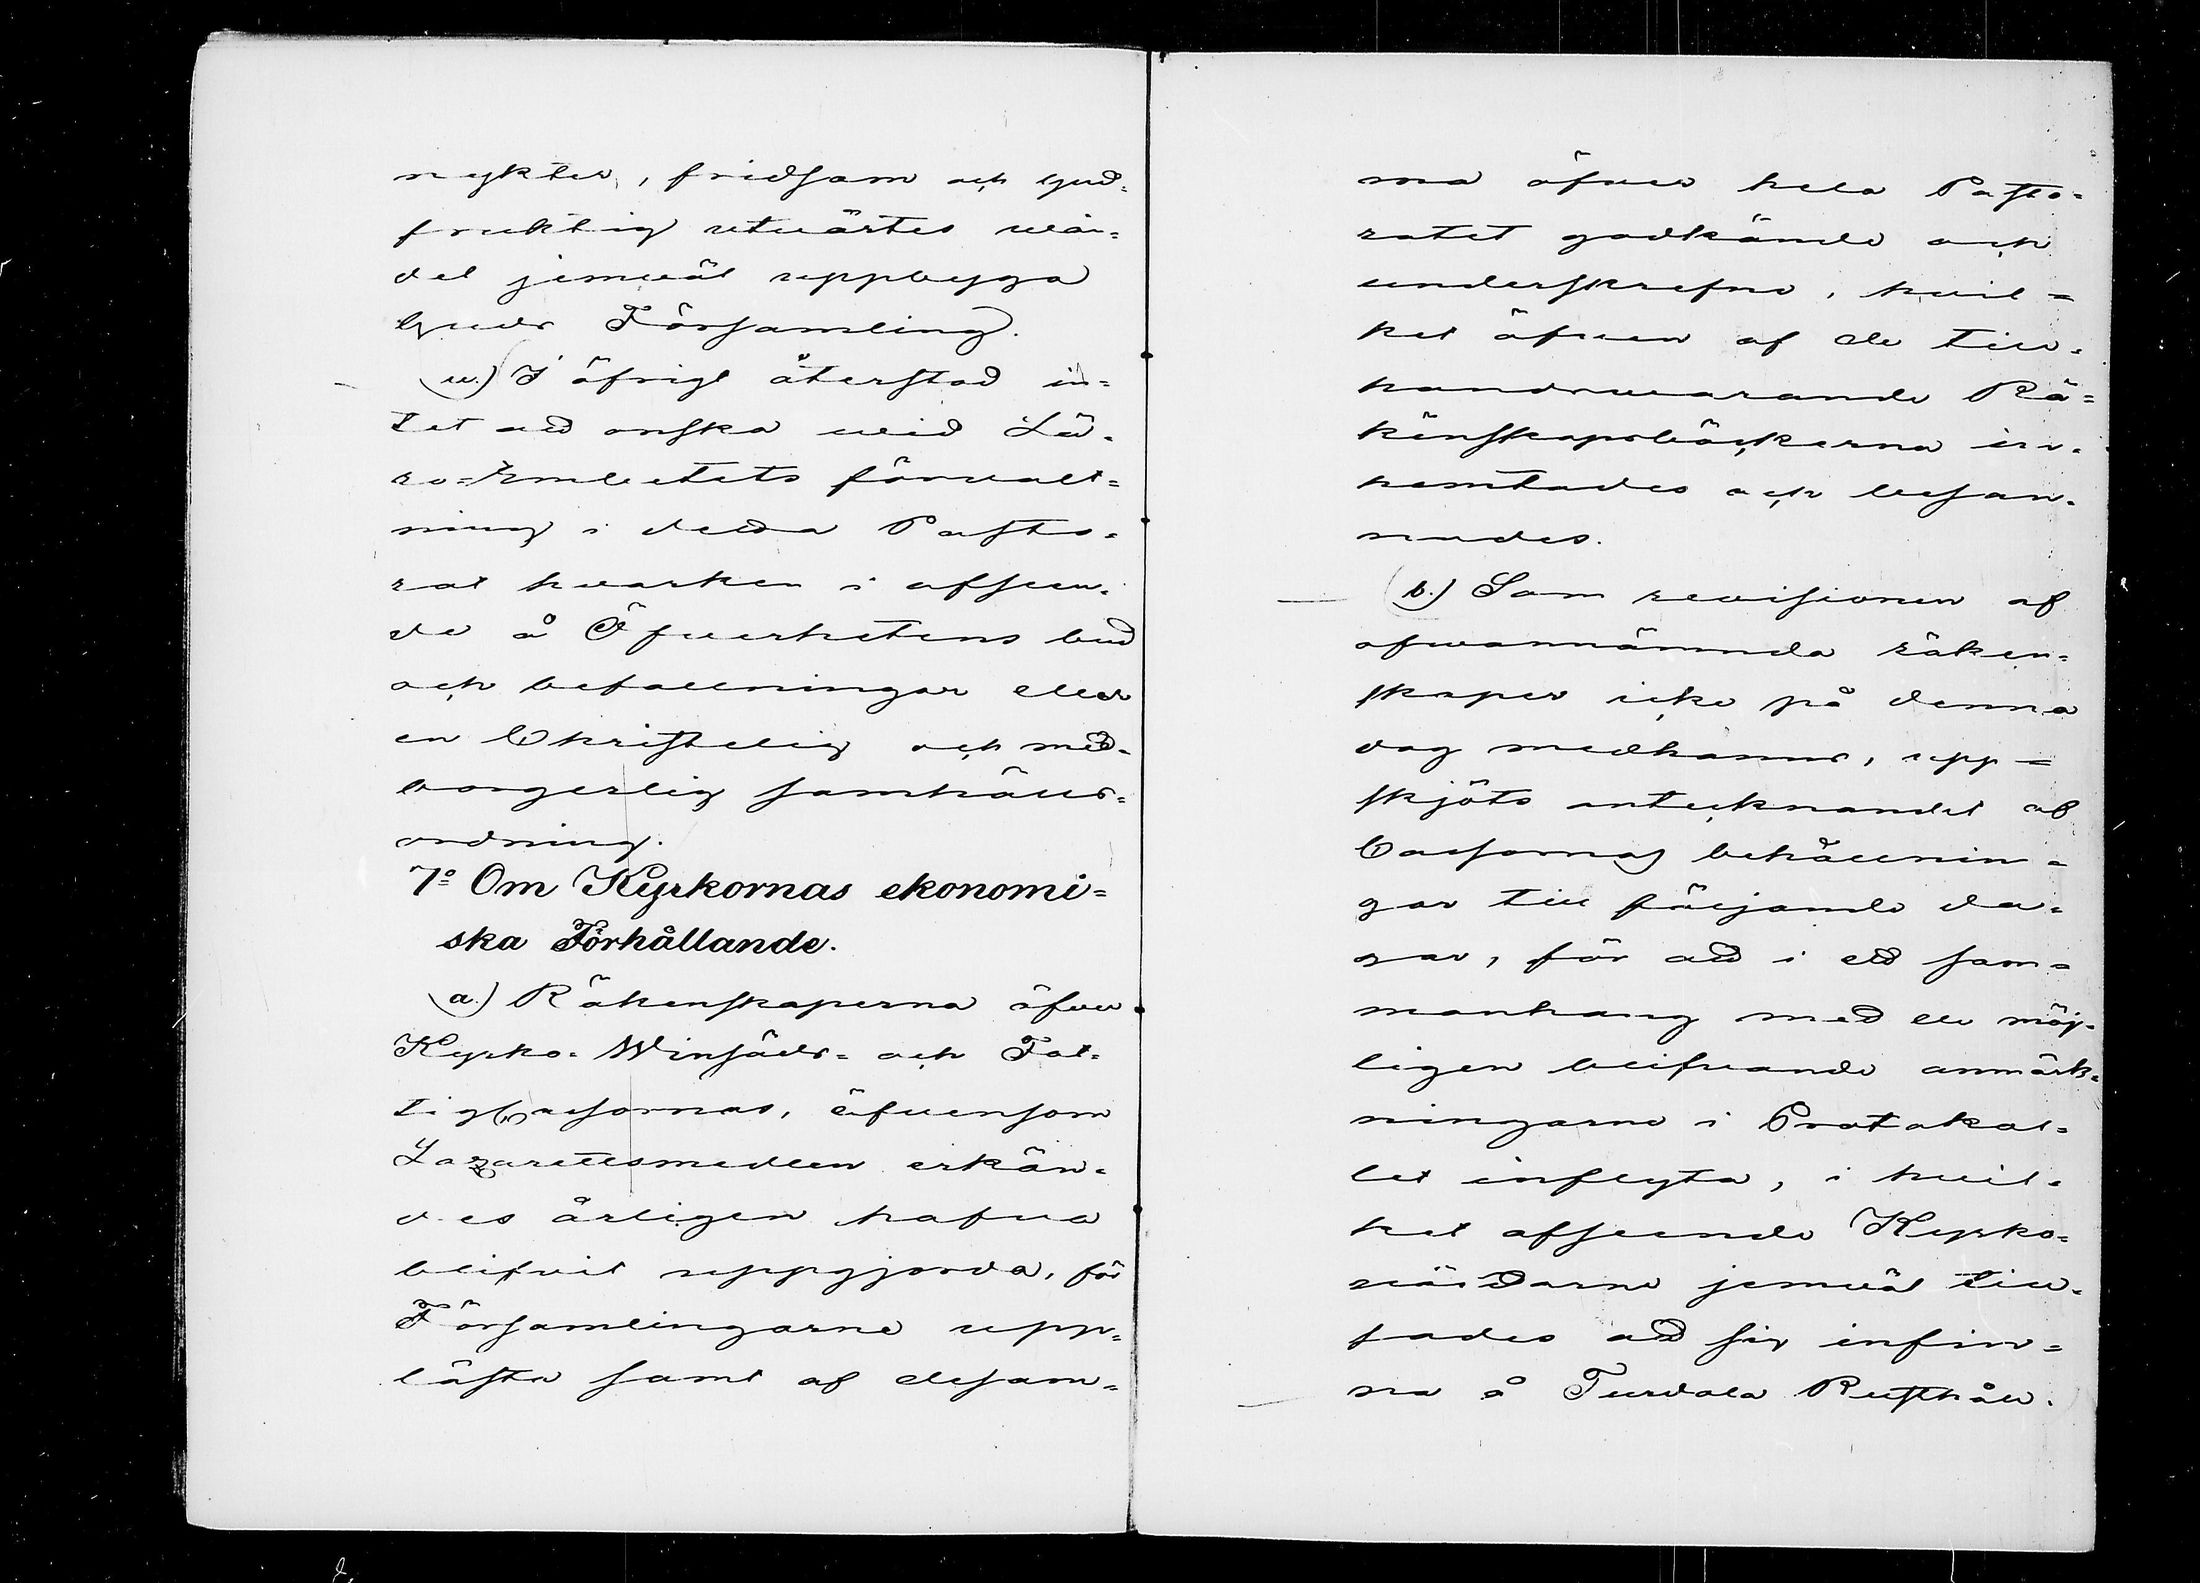 nykter, fridsam och gud=
fruktig utvärtes wan=
del jemväl uppbygga
Guds Församling.
u.) I öfrigt återstod in=
tet att önska wid Lä=
ro-Embetets förvalt=
ning i detta Pasto=
rat hvarken i afseen=
de å Öfverhetens bud
och befallningar eller
en Christelig och med=
borgerlig samhälls=
ordning.
7:o Om Kyrkornas ekonomi=
ska Förhållande.
a.) Räkenskaperna öfver
Kyrko- Winsäds- och Fat=
tigCassornas, äfvensom
Lazarettsmedlen erkän=
des årligen hafva
blifvit uppgjorda, för
Församlingarne upp=
läste samt af desam=
ma öfver hela Pasto=
ratet godkände och
underskrefne, hvil=
ket äfven af de till=
handavarande Rä=
kenskapsböckerna in=
hemtades och befan=
nades.
b.) Som revisionen af
ofvannämnda räken=
skaper icke på denna
dag medhanns, upp=
skjöts antecknandet af
Cassornas behållnin=
gar till följande da=
gar, för att i ett sam=
manhang med de möj=
ligen blifvande anmärk=
ningarne i Protokol=
let inflyta, i hvil=
ket afseende Kyrko=
värdarne jemväl till=
sades att sig infin=
na å Turdala Rusthåll.